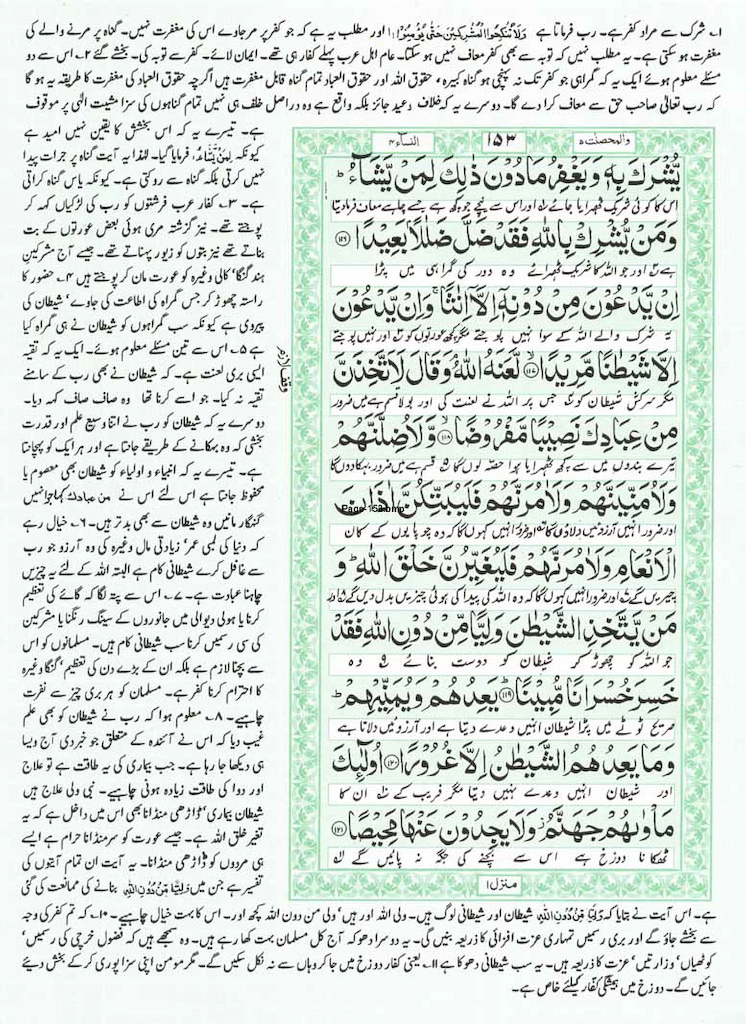 ۱۔ شرک سے مراد کفر ہے۔ رب فرماتا ہے وَلَا تُنْكِحُوا الْمُشْرِكِينَ حَتَّى يُؤْمِنُوا اور مطلب یہ ہے کہ جو کفر پر مر جاوے اس کی مغفرت نہیں۔ گناہ پر مرنے والے کی
مغفرت ہو سکتی ہے۔ یہ مطلب نہیں کہ توبہ سے بھی کفر معاف نہیں ہو سکتا۔ عام اہل عرب پہلے کفار ہی تھے۔ ایمان لائے۔ کفر سے توبہ کی۔ بخشے گئے ۲۔ اس سے دو
مسئلے معلوم ہوئے ایک یہ کہ گمراہی جو کفر تک نہ پہنچی ہو گناہ کبیرہ، حقوق اللہ اور حقوق العباد تمام گناہ قابل مغفرت ہیں اگرچہ حقوق العباد کی مغفرت کا طریقہ یہ ہو گا
کہ رب تعالٰی صاحب حق سے معاف کرا دے گا۔ دوسرے یہ کہ خلاف وعید جائز بلکہ واقع ہے وہ دراصل خلف ہی نہیں تمام گناہوں کی سزا مشیت الٰہی پر موقوف
ہے۔ تیسرے یہ کہ اس بخشش کا یقین نہیں امید ہے
کیونکہ لِمَنْ يَشَاءُ، فرمایا گیا۔ لہٰذا یہ آیت گناہ پر جرات پیدا
نہیں کرتی بلکہ گناہ سے روکتی ہے۔ کیونکہ یاس گناہ کراتی
ہے۔ ۳۔ کفار عرب فرشتوں کو رب کی لڑکیاں کہہ کر
پوجتے تھے۔ نیز گزشتہ مری ہوئی بعض عورتوں کے بت
بناتے تھے نیز بتوں کو زیور پہناتے تھے۔ جیسے آج مشرکین
ہند گنگا کالی وغیرہ کو عورت مان کر پوجتے ہیں ۴۔ حضور کا
راستہ چھوڑ کر جس گمراہ کی اطاعت کی جاوے، شیطان کی
پیروی ہے کیونکہ سب گمراہوں کو شیطان نے ہی گمراہ کیا
ہے ۵۔ اس سے تین مسئلے معلوم ہوئے۔ ایک یہ کہ تقیہ
ایسی بری لعنت ہے۔ کہ شیطان نے بھی رب کے سامنے
تقیہ نہ کیا۔ جو اسے کرنا تھا وہ صاف صاف کہہ دیا۔
دوسرے یہ کہ شیطان کو رب نے اتنا وسیع علم اور قدرت
بخشی کہ وہ بہکانے کے طریقے جانتا ہے اور ہر ایک کو پہچانتا
ہے۔ تیسرے یہ کہ انبیاء و اولیاء کو شیطان بھی معصوم یا
محفوظ جانتا ہے اس لئے اس نے من عبادك کہا جو انہیں
گنہگار مانیں وہ شیطان سے بھی بدتر ہیں۔ ۶۔ خیال رہے
کہ دنیا کی لمبی عمر، زیادتی مال وغیرہ کی وہ آرزو جو رب
سے غافل کرے شیطانی کام ہے البتہ اللہ کے لئے یہ چیزیں
چاہنا عبادت ہے۔ ۷۔ اس سے پتہ لگا کہ گائے کی تعظیم
کرنا یا ہولی دیوالی میں جانوروں کے سینگ رنگنا یا مشرکین
کی سی رسمیں کرنا سب شیطانی کام ہیں۔ مسلمانوں کو اس
سے بچنا لازم ہے بلکہ ان کے بڑے دن کی تعظیم، گنگا وغیرہ
کا احترام کرنا کفر ہے۔ مسلمان کو ہر بری چیز سے نفرت
چاہیے۔ ۸۔ معلوم ہوا کہ رب نے شیطان کو بھی علم
غیب دیا کہ اس نے آئندہ کے متعلق جو خبر دی آج ویسا
ہی دیکھا جا رہا ہے۔ جب بیماری کی یہ طاقت ہے تو علاج
اور دوا کی طاقت زیادہ ہونی چاہیے۔ نبی ولی علاج ہیں
شیطان بیماری، ڈاڑھی منڈانا بھی اس میں داخل ہے کہ یہ
تغیر خلق اللہ ہے۔ جیسے عورت کو سر منڈانا حرام ہے ایسے
ہی مردوں کو ڈاڑھی منڈانا۔ یہ آیت ان تمام آیتوں کی
تفسیر ہے جن میں وَلِيًّا مِّنْ دُونِ اللَّهِ بنانے کی ممانعت کی گئی
والمحصنت ۵
۱۵۳
النساء ۴
يُّشْرَكَ بِهٖ وَيَغْفِرُ مَا دُوْنَ ذٰلِكَ لِمَنْ يَّشَآءُ ؕ
اس کا کوئی شریک ٹھہرایا جائے ۱ اور اس سے نیچے جو کچھ ہے جسے چاہے معاف فرما دیتا
وَمَنْ يُّشْرِكْ بِاللّٰهِ فَقَدْ ضَلَّ ضَلٰلًا بَعِيْدًا ۝۱۱۶
ہے ۲ اور جو اللہ کا شریک ٹھہرائے وہ دور کی گمراہی میں پڑا
اِنْ يَّدْعُوْنَ مِنْ دُوْنِهٖۤ اِلَّاۤ اِنٰثًا ۚ وَاِنْ يَّدْعُوْنَ
یہ شرک والے اللہ کے سوا نہیں پوجتے مگر کچھ عورتوں کو ۳ اور نہیں پوجتے
اِلَّا شَيْطٰنًا مَّرِيْدًا ۝۱۱۷ لَّعَنَهُ اللّٰهُ ۘ وَقَالَ لَاَتَّخِذَنَّ
مگر سرکش شیطان کو ۴ جس پر اللہ نے لعنت کی اور بولا قسم ہے میں ضرور
وقف لازم
مِنْ عِبَادِكَ نَصِيْبًا مَّفْرُوْضًا ۝۱۱۸ وَّلَاُضِلَّنَّهُمْ
تیرے بندوں میں سے کچھ ٹھہرایا ہوا حصہ لوں گا ۵ قسم ہے میں ضرور بہکا دوں گا
وَلَاُمَنِّيَنَّهُمْ وَلَاٰمُرَنَّهُمْ فَلَيُبَتِّكُنَّ اٰذَانَ
Page-153.bmp
اور ضرور انہیں آرزوئیں دلاؤں گا ۶ اور ضرور انہیں کہوں گا کہ وہ چوپایوں کے کان
الْاَنْعَامِ وَلَاٰمُرَنَّهُمْ فَلَيُغَيِّرُنَّ خَلْقَ اللّٰهِ ؕ وَ
چیریں گے ۷ اور ضرور انہیں کہوں گا کہ وہ اللہ کی پیدا کی ہوئی چیزیں بدل دیں گے ۸ اور
مَنْ يَّتَّخِذِ الشَّيْطٰنَ وَلِيًّا مِّنْ دُوْنِ اللّٰهِ فَقَدْ
جو اللہ کو چھوڑ کر شیطان کو دوست بنائے ۹ وہ
خَسِرَ خُسْرَانًا مُّبِيْنًا ۝۱۱۹ يَعِدُهُمْ وَيُمَنِّيْهِمْ ؕ
صریح ٹوٹے میں پڑا شیطان انہیں وعدے دیتا ہے اور آرزوئیں دلاتا ہے
وَمَا يَعِدُهُمُ الشَّيْطٰنُ اِلَّا غُرُوْرًا ۝۱۲۰ اُولٰٓئِكَ
اور شیطان انہیں وعدے نہیں دیتا مگر فریب کے ۱۰ ان کا
مَاْوٰىهُمْ جَهَنَّمُ ؗ وَلَا يَجِدُوْنَ عَنْهَا مَحِيْصًا ۝۱۲۱
ٹھکانا دوزخ ہے اس سے بچنے کی جگہ نہ پائیں گے ۱۱
منزل ۱
ہے۔ اس آیت نے بتایا کہ وَلِيًّا مِّنْ دُونِ اللَّهِ شیطان اور شیطانی لوگ ہیں۔ ولی اللہ اور ہیں، ولی من دون اللہ کچھ اور۔ اس کا بہت خیال چاہیے۔ ۱۰۔ کہ تم کفر کی وجہ
سے بخشے جاؤ گے اور بری رسمیں تمہاری عزت افزائی کا ذریعہ بنیں گی۔ یہ دوسرا دھوکہ آج کل مسلمان بہت کھا رہے ہیں۔ وہ سمجھے ہیں کہ فضول خرچی کی رسمیں،
کوٹھیاں، وزارتیں، عزت کا ذریعہ ہیں۔ یہ سب شیطانی دھوکا ہے ۱۱۔ یعنی کفار دوزخ میں جا کر وہاں سے نہ نکل سکیں گے۔ مگر مومن اپنی سزا پوری کر کے بخش دیئے
جائیں گے۔ دوزخ میں ہمیشگی کفار کیلئے خاص ہے۔